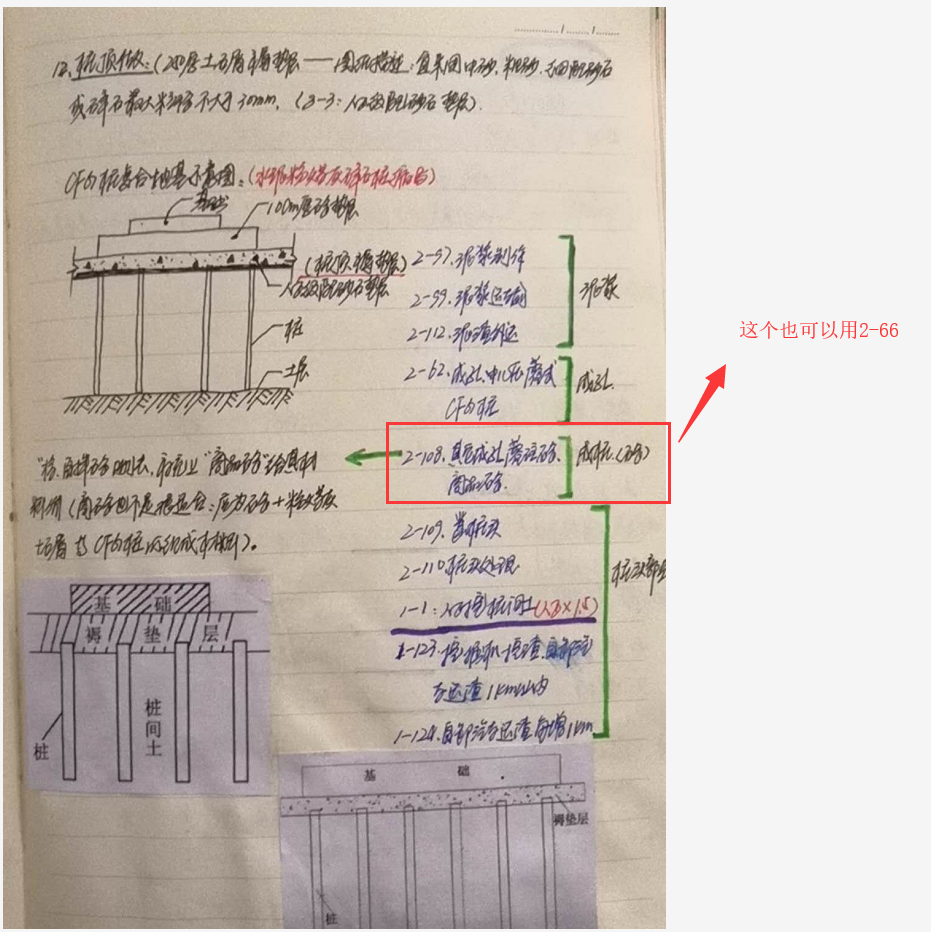 12、桩顶做:(250厚土石屑褥垫层——图纸描述:宜采用中砂、粗砂、级配砂石
或碎石最大粒径不大于30mm。(8-3:人工级配砂石垫层).
CFG桩复合地基示意图:(水泥粉煤灰碎石桩
基础
100mm厚砼垫层
(桩顶褥垫层)
人工级配砂石垫层
桩
土层
2-97.泥浆制作
2-99.泥浆运输
2-112.泥渣外运
泥浆
2-62.成孔
CFG桩
成孔
2-108.成孔灌注砼、
商品砼.
成桩(砼)
这个也可以用2-66
料(商砼也不是很适合:应为砼+粉煤灰
+石屑 为CFG桩的组成材料)。
2-109.凿桩头
2-110桩头处理
1-1:人工挖桩间土(人工×1.5)
1-123.挖掘机挖渣.自卸汽
车运渣1km以内
1-124.自卸汽车运渣每增1km
桩头部
基 础
褥 垫 层
桩
桩间土
基 础
褥垫层
桩